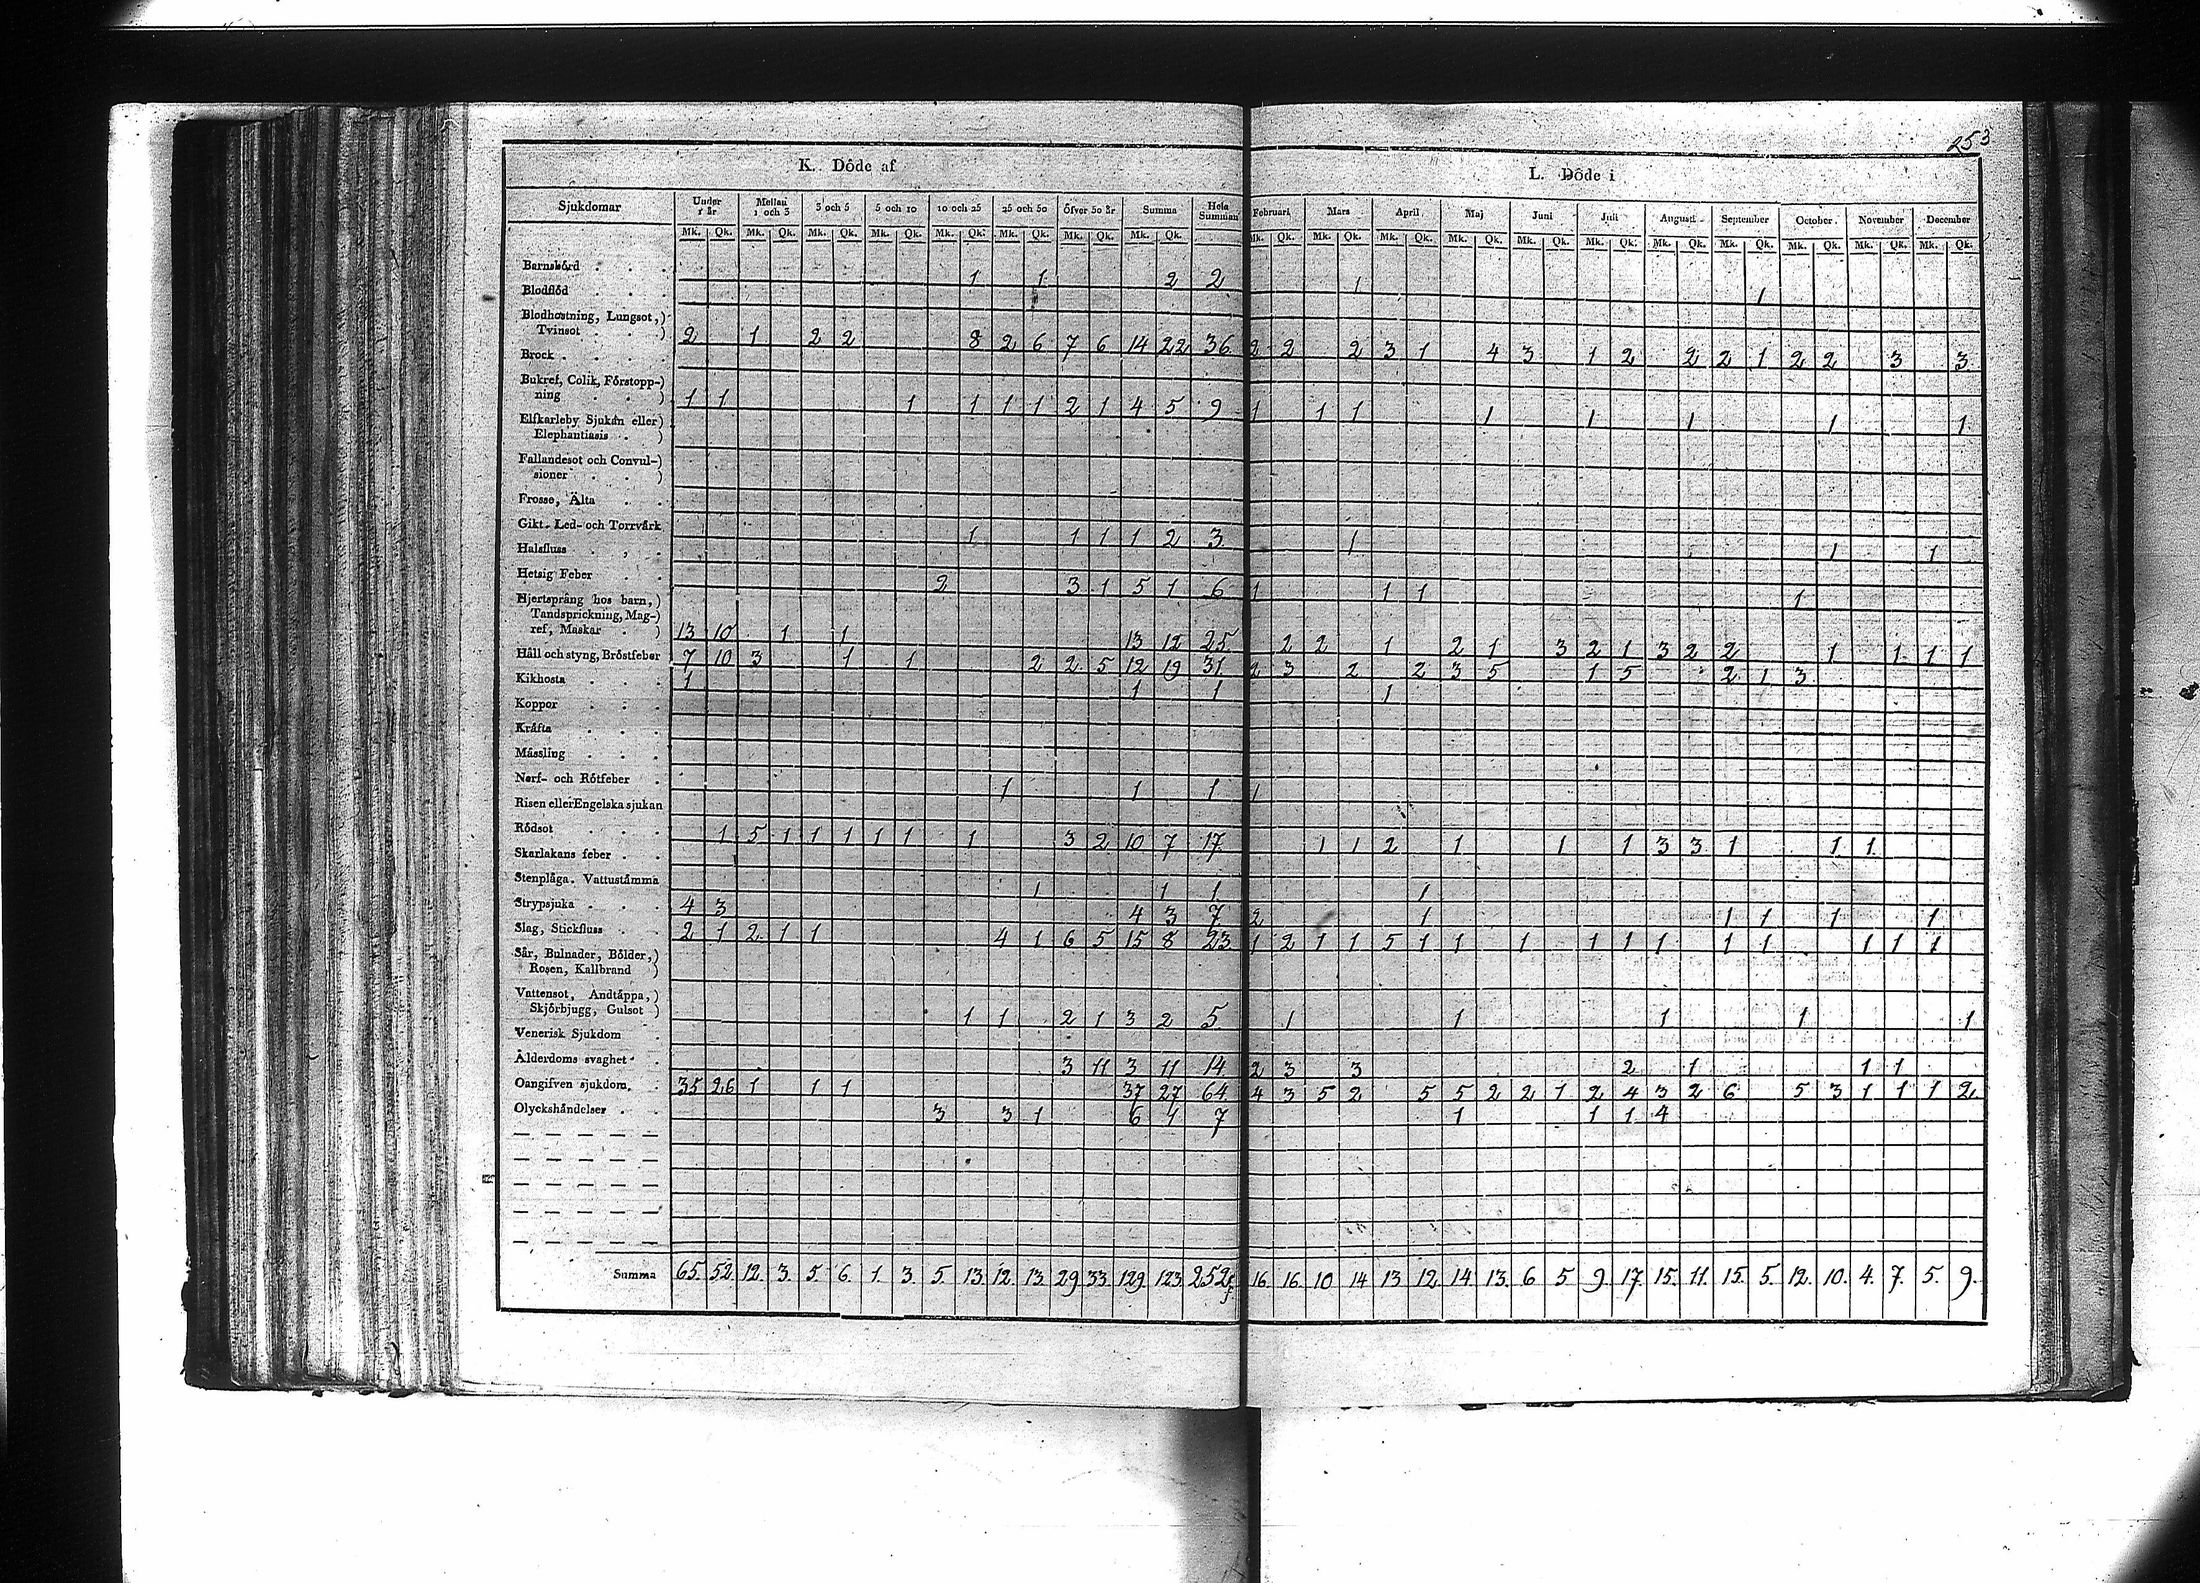 253
K. Döde af
L. Döde i
Sjukdomar Under 1 år Mellan 1 och 3 3 och 5 5 och 10 10 och 25 25 och 50 öfver 50 år Summa Hela Summan Februari Mars April Maj Juni Juli Augusti September October. November December
Mk. Qk. Mk. Qk. Mk. Qk. Mk. Qk. Mk. Qk. Mk. Qk. Mk. Qk. Mk. Qk. Mk. Qk. Mk. Qk. Mk. Qk. Mk. Qk. Mk. Qk. Mk. Qk. Mk. Qk. Mk. Qk. Mk. Qk. Mk. Qk. Mk. Qk.
Barnsbörd 1 1 2 2 1 1
Blodflöd
Blodhostning, Lungsot,)
Tvinsot ) 2 1 2 2 8 2 6 7 6 14 22 36 2 2 2 3 1 4 3 1 2 2 2 1 2 2 3 3
Brock
Bukref, Colik, Förstopp-)
ning ) 1 1 1 1 1 1 2 1 4 5 9 1 1 1 1 1 1 1 1
Elfkarleby Sjukan eller)
Elephantiasis )
Fallandesot och Convul-)
sioner )
Frosse, Älta
Gikt, Led- och Torrvärk 1 1 1 1 2 3 1 1 1
Halsfluss
Hetsig Feber 2 3 1 5 1 6 1 1 1 1
Hjertsprång hos barn,)
Tandsprickning, Mag-)
ref, Maskar ) 13 10 1 1 13 12 25 2 2 1 2 1 3 2 1 3 2 2 1 1 1 1
Håll och styng, Bröstfeber 7 10 3 1 1 2 2 5 12 19 31 2 3 2 2 3 5 1 5 2 1 3
Kikhosta 1 1 1 1
Koppor
Kräfta
Mässling
Nerf- och Rötfeber 1 1 1 1
Risen eller Engelska sjukan
Rödsot 1 5 1 1 1 1 1 1 3 2 10 7 17 1 1 2 1 1 1 3 3 1 1 1
Skarlakans feber
Stenplåga. Vattustämma 1 1 1 1
Strypsjuka 4 3 4 3 7 2 1 1 1 1 1
Slag, Stickfluss 2 1 2 1 1 4 1 6 5 15 8 23 1 2 1 1 5 1 1 1 1 1 1 1 1 1 1 1
Sår, Bulnader, Bölder,)
Rosen, Kallbrand )
Vattensot, Andtäppa,)
Skjörbjugg, Gulsot ) 1 1 2 1 3 2 5 1 1 1 1 1
Venerisk Sjukdom
Ålderdoms svaghet 3 11 3 11 14 2 3 3 2 1 1 1
Oangifven sjukdom, 35 26 1 1 1 37 27 64 4 3 5 2 5 5 2 2 1 2 4 3 2 6 5 3 1 1 1 2
Olyckshändelser 3 3 1 6 1 7 1 1 1 4
Summa 65. 52 12. 3. 5. 6. 1. 3. 5. 13. 12. 13. 29 33. 129. 123. 252 16. 16. 10 14 13 12. 14 13. 6 5 9. 17. 15. 11. 15. 5. 12. 10. 4. 7. 5. 9.